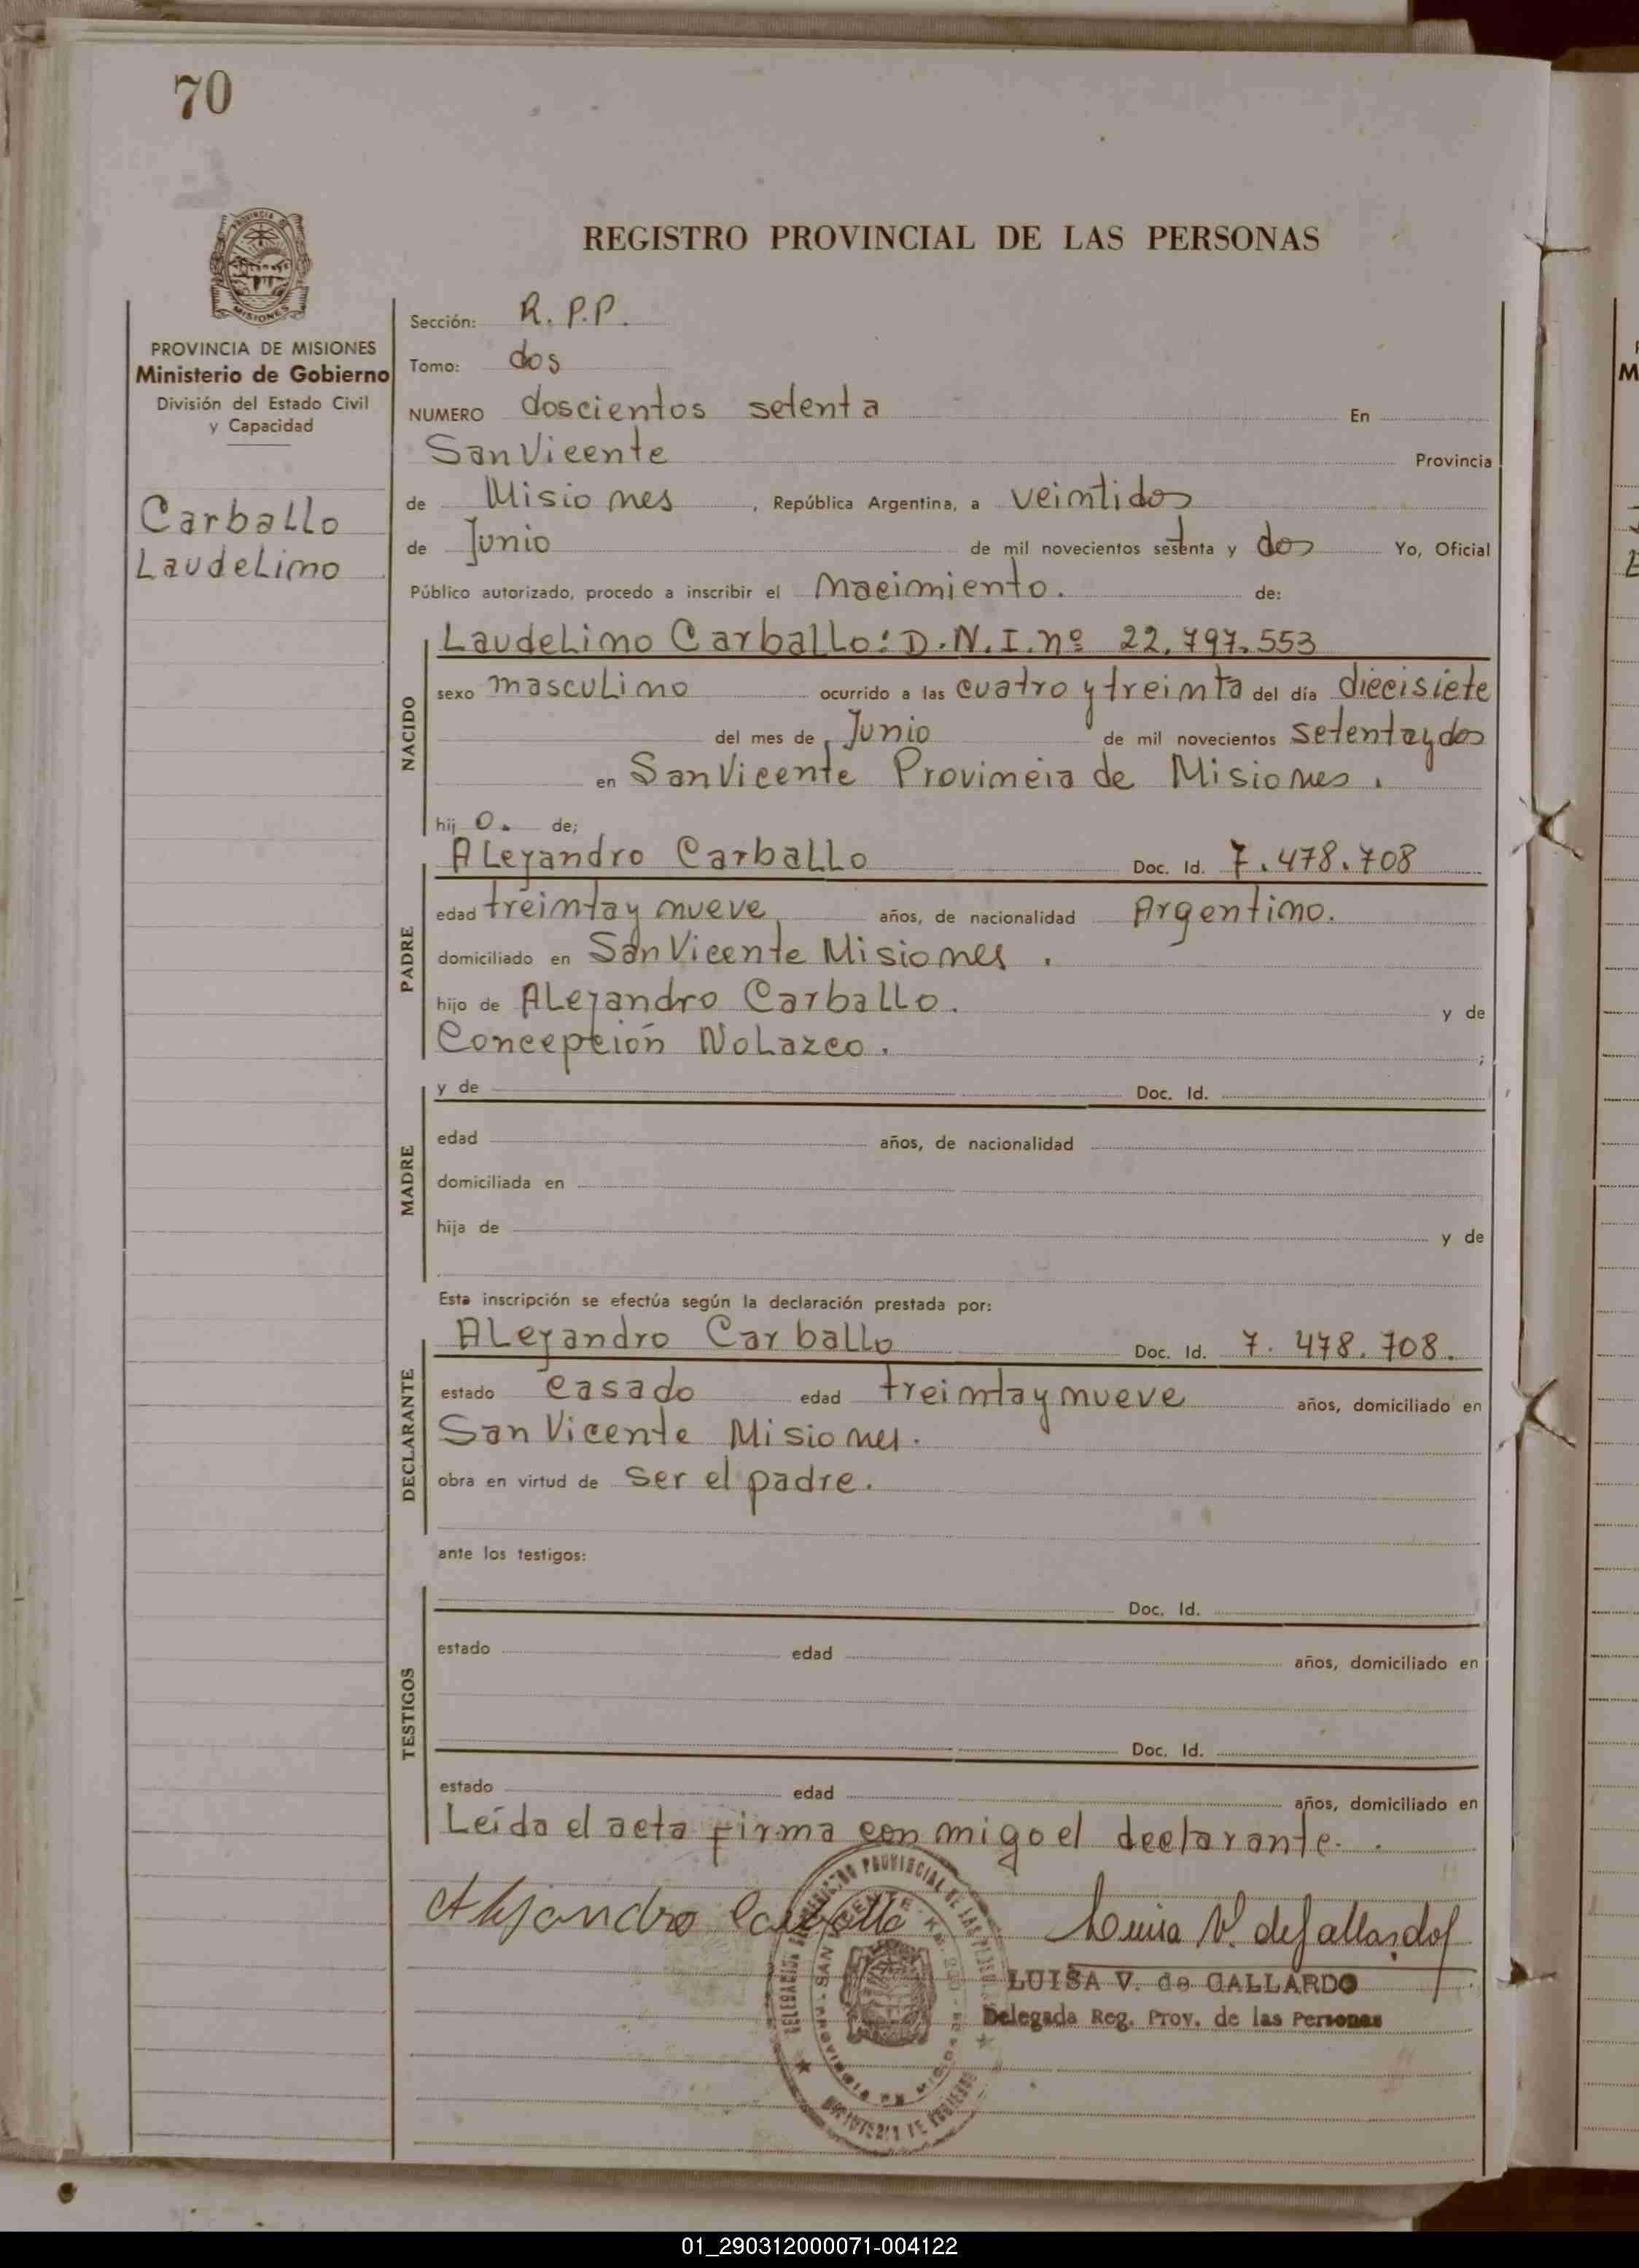 70
REGISTRO PROVINCIAL DE LAS PERSONAS
PROVINCIA DE MISIONES
Ministerio de Gobierno
División del Estado Civil
y Capacidad
Carballo
Laudelino
Sección: R. P.P.
Tomo: dos
NUMERO doscientos setenta En
San Vicente Provincia
de Misiones , República Argentina, a veintidos
de Junio de mil novecientos setenta y dos Yo, Oficial
Público autorizado, procedo a inscribir el nacimiento. de:
NACIDO
Laudelino Carballo: D.N.I. nº 22.797.553
sexo masculino ocurrido a las cuatro y treinta del día diecisiete
del mes de Junio de mil novecientos setenta y dos
en San Vicente Provincia de Misiones.
hij o. de;
PADRE
Alejandro Carballo Doc. Id. 7.478.708
edad treinta y nueve años, de nacionalidad Argentino.
domiciliado en San Vicente Misiones.
hijo de Alejandro Carballo. y de
Concepción Nolazco. ;
MADRE
y de Doc. Id.
edad años, de nacionalidad
domiciliada en
hija de y de
Esta inscripción se efectúa según la declaración prestada por:
DECLARANTE
Alejandro Carballo Doc. Id. 7. 478. 708.
estado casado edad treinta y nueve años, domiciliado en
San Vicente Misiones.
obra en virtud de ser el padre.
ante los testigos:
TESTIGOS
Doc. Id.
estado edad años, domiciliado en
Doc. Id.
estado edad años, domiciliado en
Leída el acta firma conmigo el declarante.
Alejandro Carballo Luisa V. de Gallardo
LUISA V. de GALLARDO
Delegada Reg. Prov. de las Personas
01_290312000071-004122